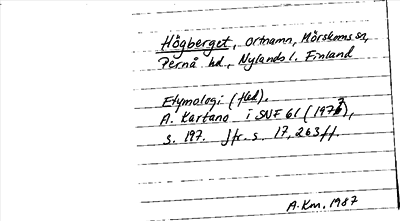 Högberget, ortnamn, Mörskoms sn,
Pernå hd, Nylands l. Finland
Etymologi (fkd).
A. Kartano i SNF 61 (1973),
s. 197. Jfr. s. 17, 263 ff.
A.Km. 1987